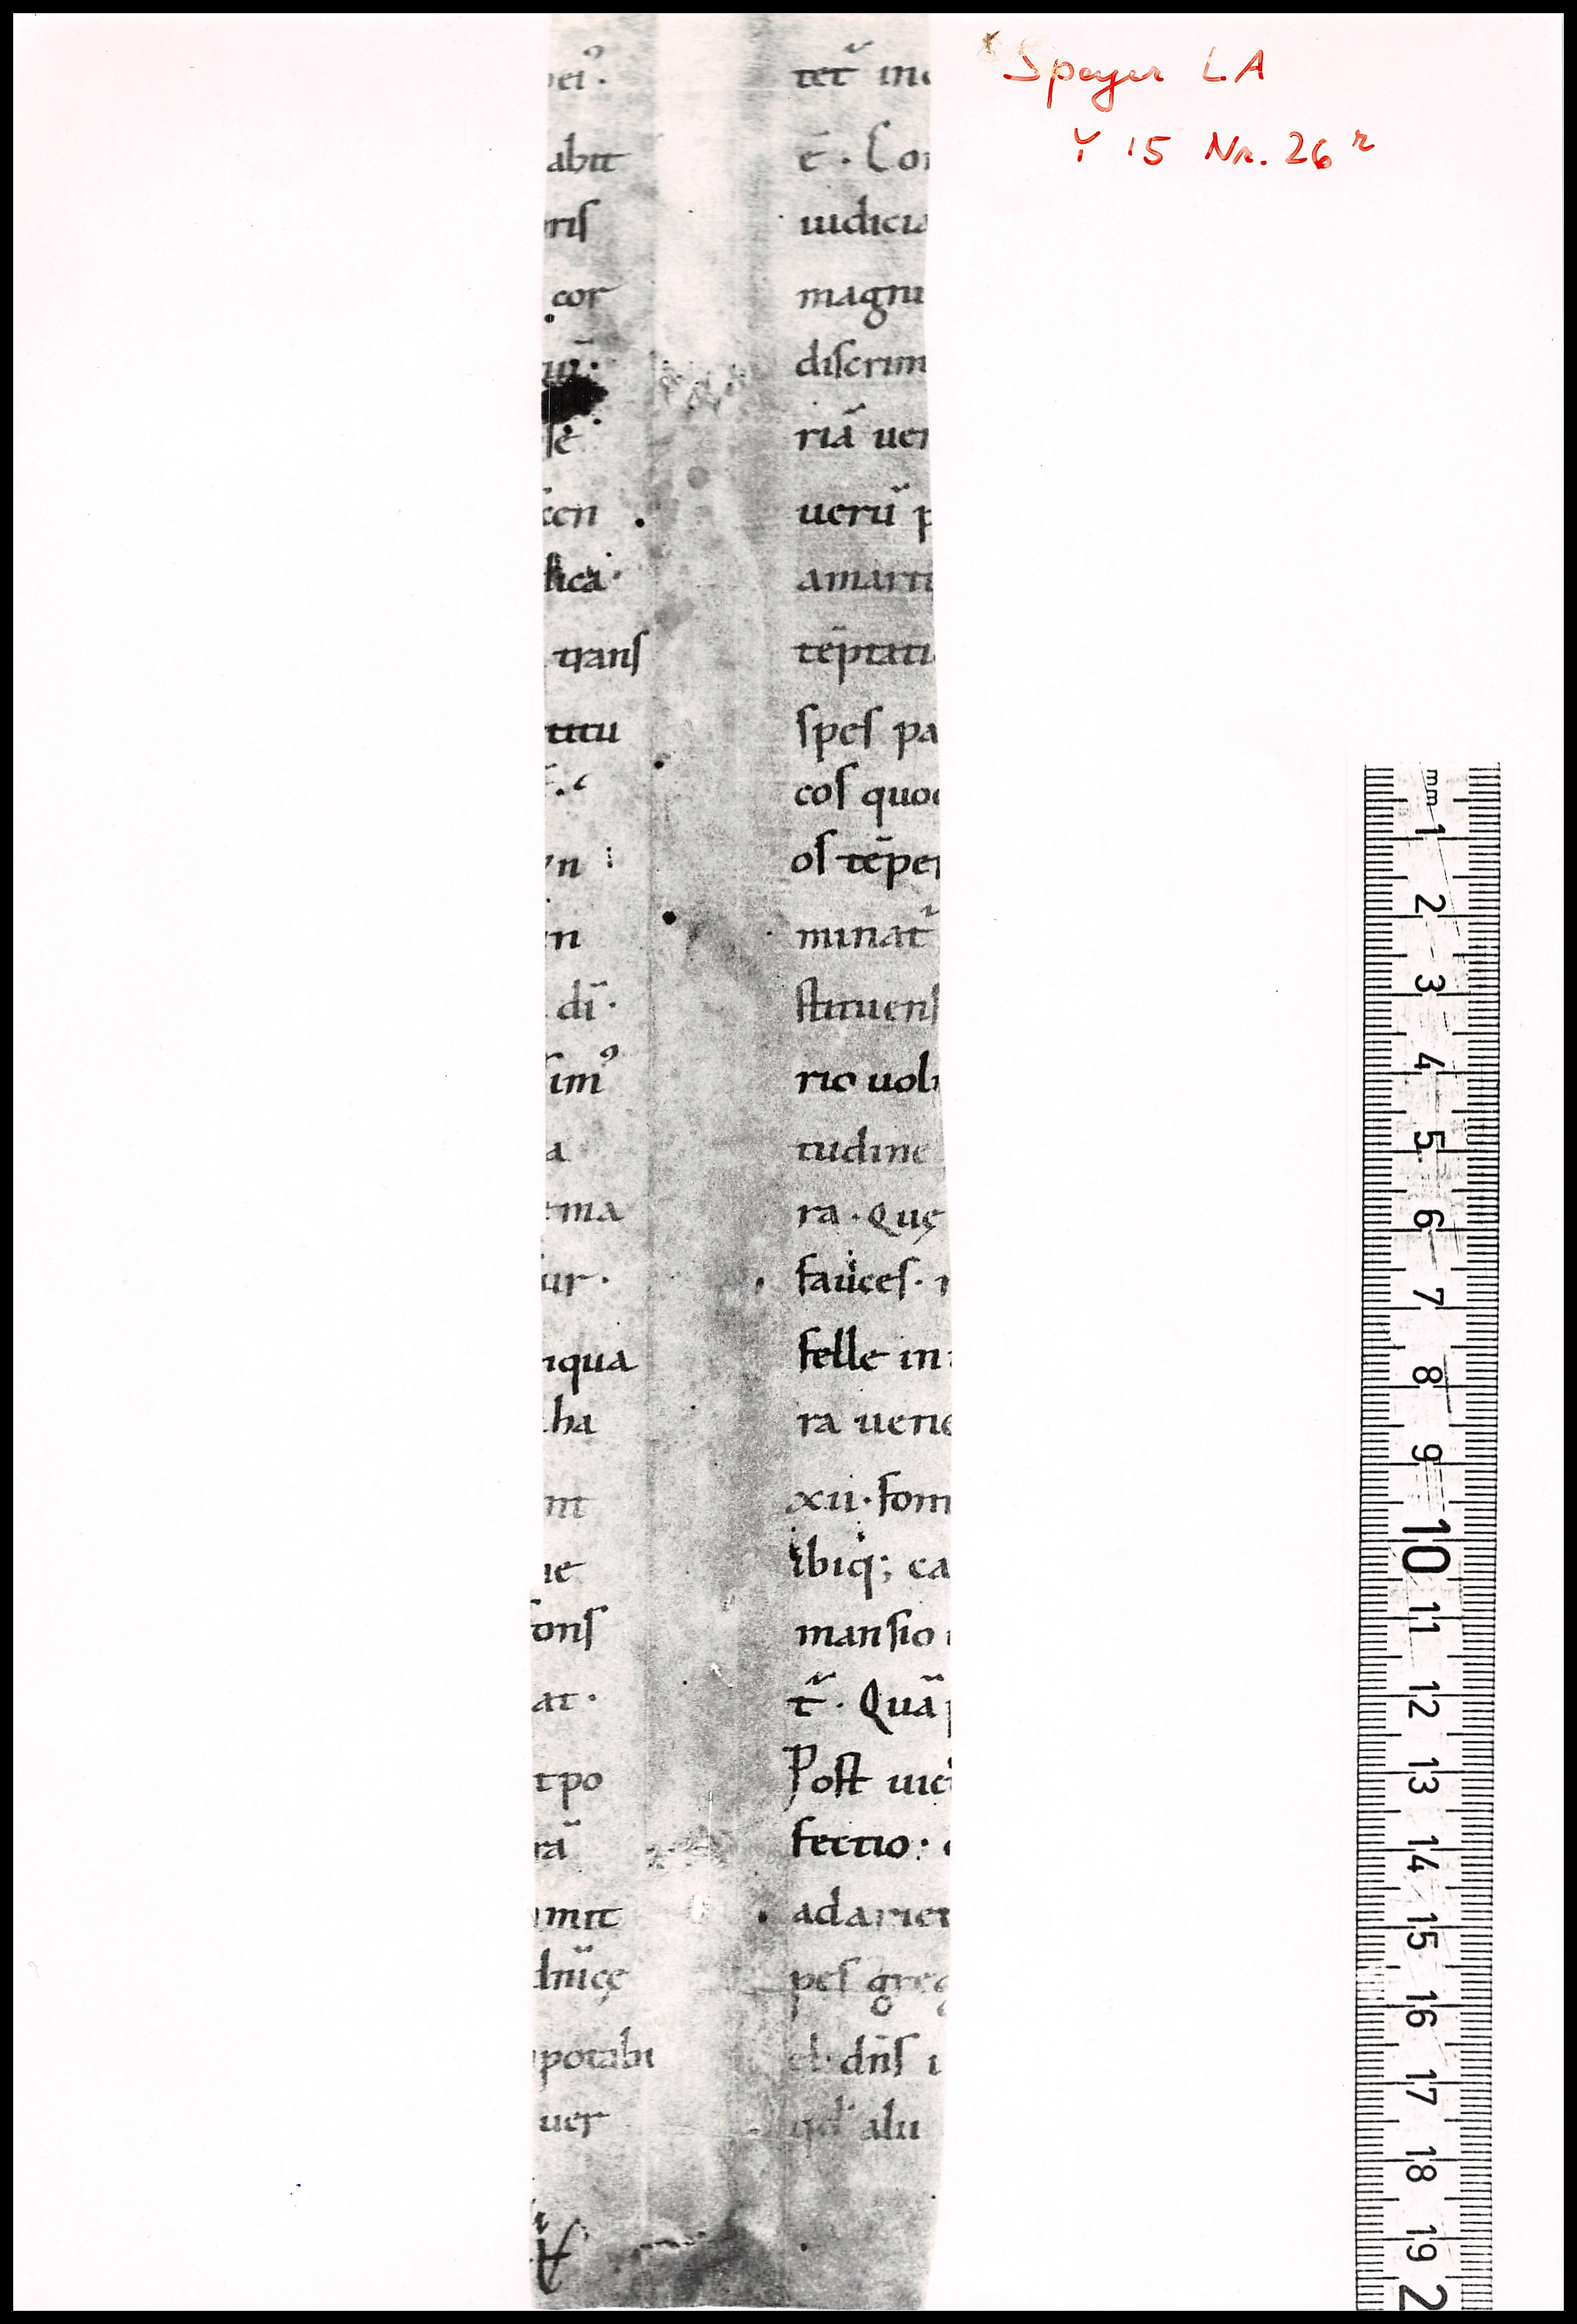 Speyer LA
Y 15 Nr. 26 r
abit
ris
cor
trans
titu
di᷑·
imꝰ
a
ma
ur·
qua
ha
nt
ue
fons
at·
tpo
rã
mit
dñicę
potabi
uer
tet᷑ in
ē · Co
iudicia
magni
discrim
riā uer
uerū p
amarit
tēptati
spes pa
cos quo
os tēper
minat᷑
stituens
rio uolu
tudine
ra · Quę
fauces ·
felle in
ra uene
xii · fon
ibiq; ca
mansio
t᷑ · Quā
Post uic
fectio :
ad ariet
pes greg
el · dñs i
qd alii
mm 1 2 3 4 5 6 7 8 9 10 11 12 13 14 15 16 17 18 19 2